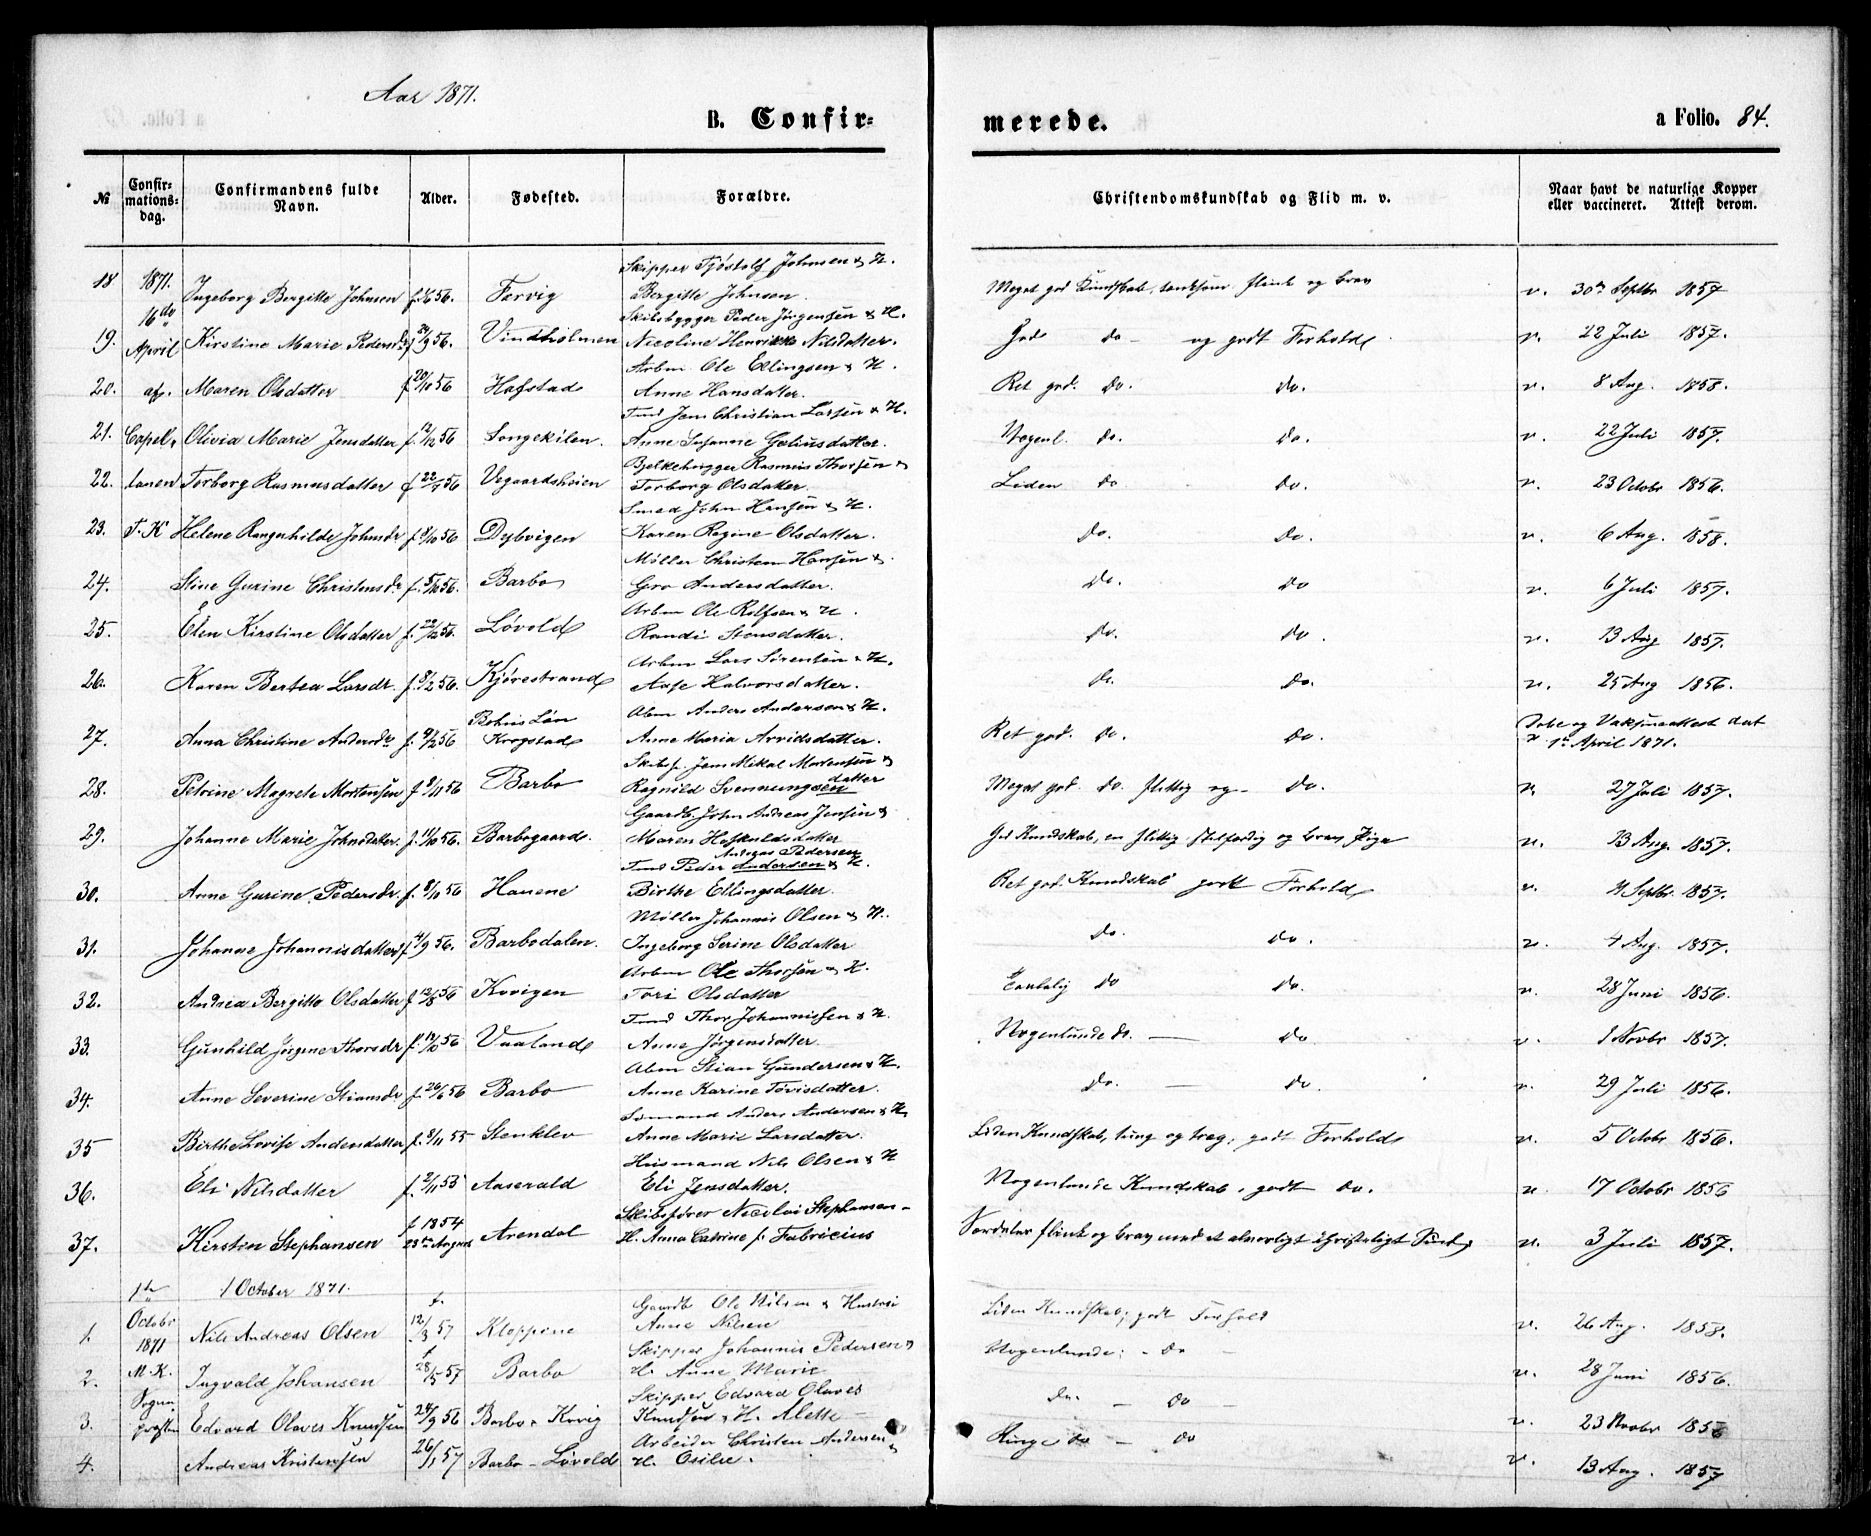 Aar 1871.
B. Confir- merede. a Folio. 84.
№ Confir-mations-dag. Confirmandens fulde Navn. Alder. Fødested. Forældre. Christendomskundskab og Flid m. v. Naar havt de naturlige Kopper eller vaccineret. Attest derom.
Skipper Tjøstolf Johnsen & H.
18 1871. Ingeborg Bergitte Johnsen Fervig Bergitte Johnsen. Meget god Kundskab, flink og brav v. 30te Septbr 1857
16de Skibsbygger Peder Jørgensen & H.
19. April Kirstine Marie Pedersdr f 24/9 56. Vindholmen Nicoline Henrikke Nilsdatter. God do - og godt Forhold v. 22 Juli 1857.
Arbm Ole Ellingsen & H.
20. af. Maren Olsdatter f 20/10 56 Hafstad Anne Hansdatter. Ret god. do. do. v. 8 Aug. 1858.
Tmd Jens Christian Larsen & H.
21. Capel- Olivia Marie Jensdatter f. 12/12 56 Songekilen. Anne Susanne Gjeliusdatter. Nogenl. do. do. v. 22 Juli 1857.
Bjelkehugger Rasmus Thorsen &
22. lanen Torborg Rasmusdatter f 22/7 56 Vegaardsheien Torborg Olsdatter. Liden do do. v. 23 Octobr 1856.
Smed John Hansen & H.
23. T. K Helene Rangnhilde Johnsdr f. 8/10 56 Dybvigen Karen Regine Olsdatter. do. do. v. 6 Aug. 1858.
Møller Christen Hansen &
24. Stine Gurine Christensdr f. 5/10 56. Barbo Gro Andersdatter. do. do v. 6 Juli 1857.
Arbm Ole Rolfsen & H.
25. Elen Kirstine Olsdatter f. 22/12 56. Løvold Randi Stensdatter. do. do. v. 13 Aug 1857.
Arbm Lars Sørensen & H.
26. Karen Bertea Larsdr. f. 8/2 56. Kjørestrand Aase Halvorsdatter. do. do. v. 25 Aug 1856.
Bohus Län Abm Anders Anderson & H.
27. Anna Christine Andersdr f. 9/2 56 Krogstad Anne Maria Arvidsdatter. Ret god. do. do. Dobe og Vakzinattest dat 1te April 1871.
Skibsf. Jens Mikal Mortensen &
28. Petrine Magrete Mortensen f 9/11 56 Barbo Ragnild Svennungsen datter Meget god. do. flittig og - do. v. 27 Juli 1857.
Gaardb. John Andreas Jensen &
29. Johanne Marie Johnsdatter. f. 11/10 56. Barbogaard. Maren Hofkuldsdatter God Kundskab, en flittig, stilfærdig og brav Pige v. 13 Aug. 1857.
Andreas Pedersen
Tmd Peder Andersen & H.
30. Anne Gurine Pedersdr f. 8/10 56 Hauene Birthe Ellingsdatter. Ret god Kundskab godt Forhold v. 4 Septbr. 1857.
Møller Johannis Olsen & H.
31. Johanne Johannisdatter f 4/9 56. Barbodalen. Ingeborg Serine Olsdatter do. do. v. 4 Aug. 1857.
Arbm Ole Thorsen & H.
32. Andrea Bergitte Olsdatter f 12/8 56 Kvvigen Tori Olsdatter Taalelig do do. v. 28 Juni 1856.
Tmd Thor Johannissen & H.
33. Gunhild Jørgine Thorsdr f. 19/10 56 Vaaland Anne Jørgensdatter. Nogenlunde do. do v. 1 Novbr 1857.
Abm Stian Gundersen & H.
34. Anne Severine Stiansdr f. 26/6 56 Barbo Anne Karine Tovisdatter. do. do. v. 29 Juli 1856.
Sømand Anders Andersen & H.
35 Birthe Lovise Andersdatter f. 8/11 55 Stenklev Anne Marie Larsdatter. Liden Kundskab, tung og træg, godt Forhold v. 5 Octobr 1856.
Husmand Nils Olsen & H
36. Eli Nilsdatter f. 2/11 55 Aaserald Eli Jensdatter. Nogenlunde Kundskab, godt do. v. 17 Octobr 1856
f 1854 Skibsfører Nicolai Stephansen -
37. Kirstin Stephansen 23de August Arendal H. Anna Catrine f. Fabricius Særdeles flink og brav med et alvorligt christeligt Sind v. 3 Juli 1857.
1te 1 October 1871.
Octobr f. Gaardb Ole Nilsen & Hustru
1. 1871 Nils Andreas Olsen 12/3 57 Kloppene Anne Nilsen Liden Kundskab, godt Forhold v. 26 Aug. 1858.
M. K. f Skipper Johannis Pedersen &
2. Ingvald Johansen 28/5 57 Barbo H. Anne Marie Nogenlunde - do - v. 28 Juni 1856.
Sogne Skipper Edvard Olaves
3. præsten Edvard Olaves Knudsen 24/9 56 Barbo - Kvvig Knudsen & H. Alette - do. - do v. 23 Novbr 1856
Arbeider Christen Andersen &
4. Andreas Kristensen 26/1 57 Barbo - Løvold H. Osilie. Ringe do - do v. 13 Aug. 1857